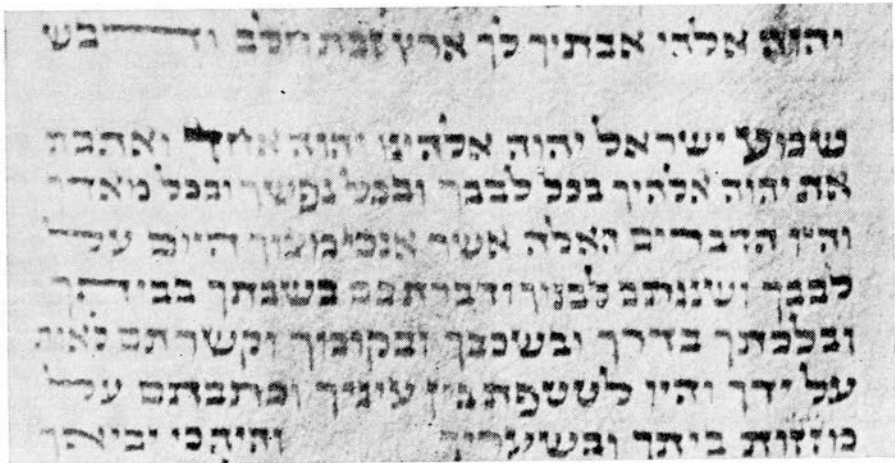 יהוה אלהי אבתיך לך ארץ זבת חלב ודבש
שמע ישראל יהוה אלהינו יהוה אחד ואהבת
את יהוה אלהיך בכל לבבך ובכל נפשך ובכל מאדך
והיו הדברים האלה אשר אנכי מצוך היום על
לבבך ושננתם לבניך ודברת בם בשבתך בביתך
ובלכתך בדרך ובשכבך ובקומיך וקשרתם לאות
על ידך והיו לטטפת בין עיניך וכתבתם על
מזזות ביתך ובשעריך והיה כי יביאך